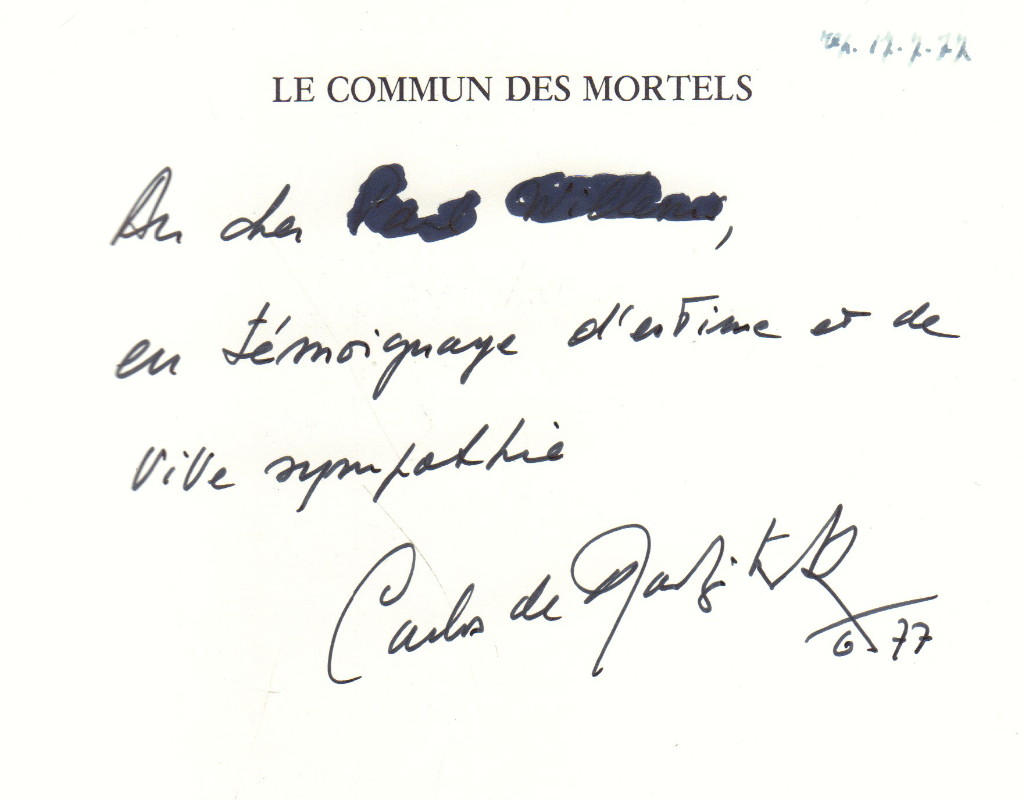 LE COMMUN DES MORTELS
Au cher ,
en témoignage d'estime et de
vive sympathie
Carlos de Radzitzky
6-77